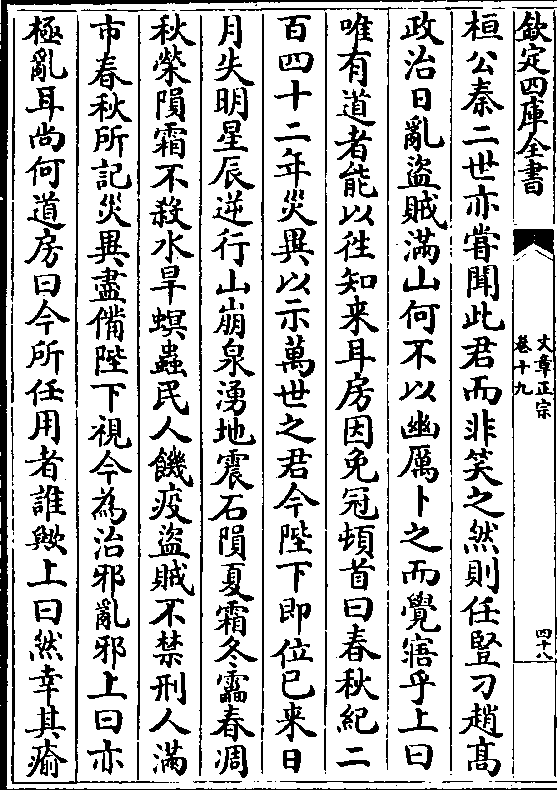 欽定四庫全書
文章正宗
卷十九
四十八
桓公秦二世亦嘗聞此君而非笑之然則任豎刁趙高
政治日亂盜賊滿山何不以幽厲卜之而覺寤乎上曰
唯有道者能以往知来耳房因免冠頓首曰春秋紀二
百四十二年災異以示萬世之君今陛下即位已来日
月失明星辰逆行山崩泉湧地震石隕夏霜冬靁春凋
秋榮隕霜不殺水旱螟蟲民人饑疫盜賊不禁刑人滿
市春秋所記災異盡備陛下視今為治邪亂邪上曰亦
極亂耳尚何道房曰今所任用者誰歟上曰然幸其瘉